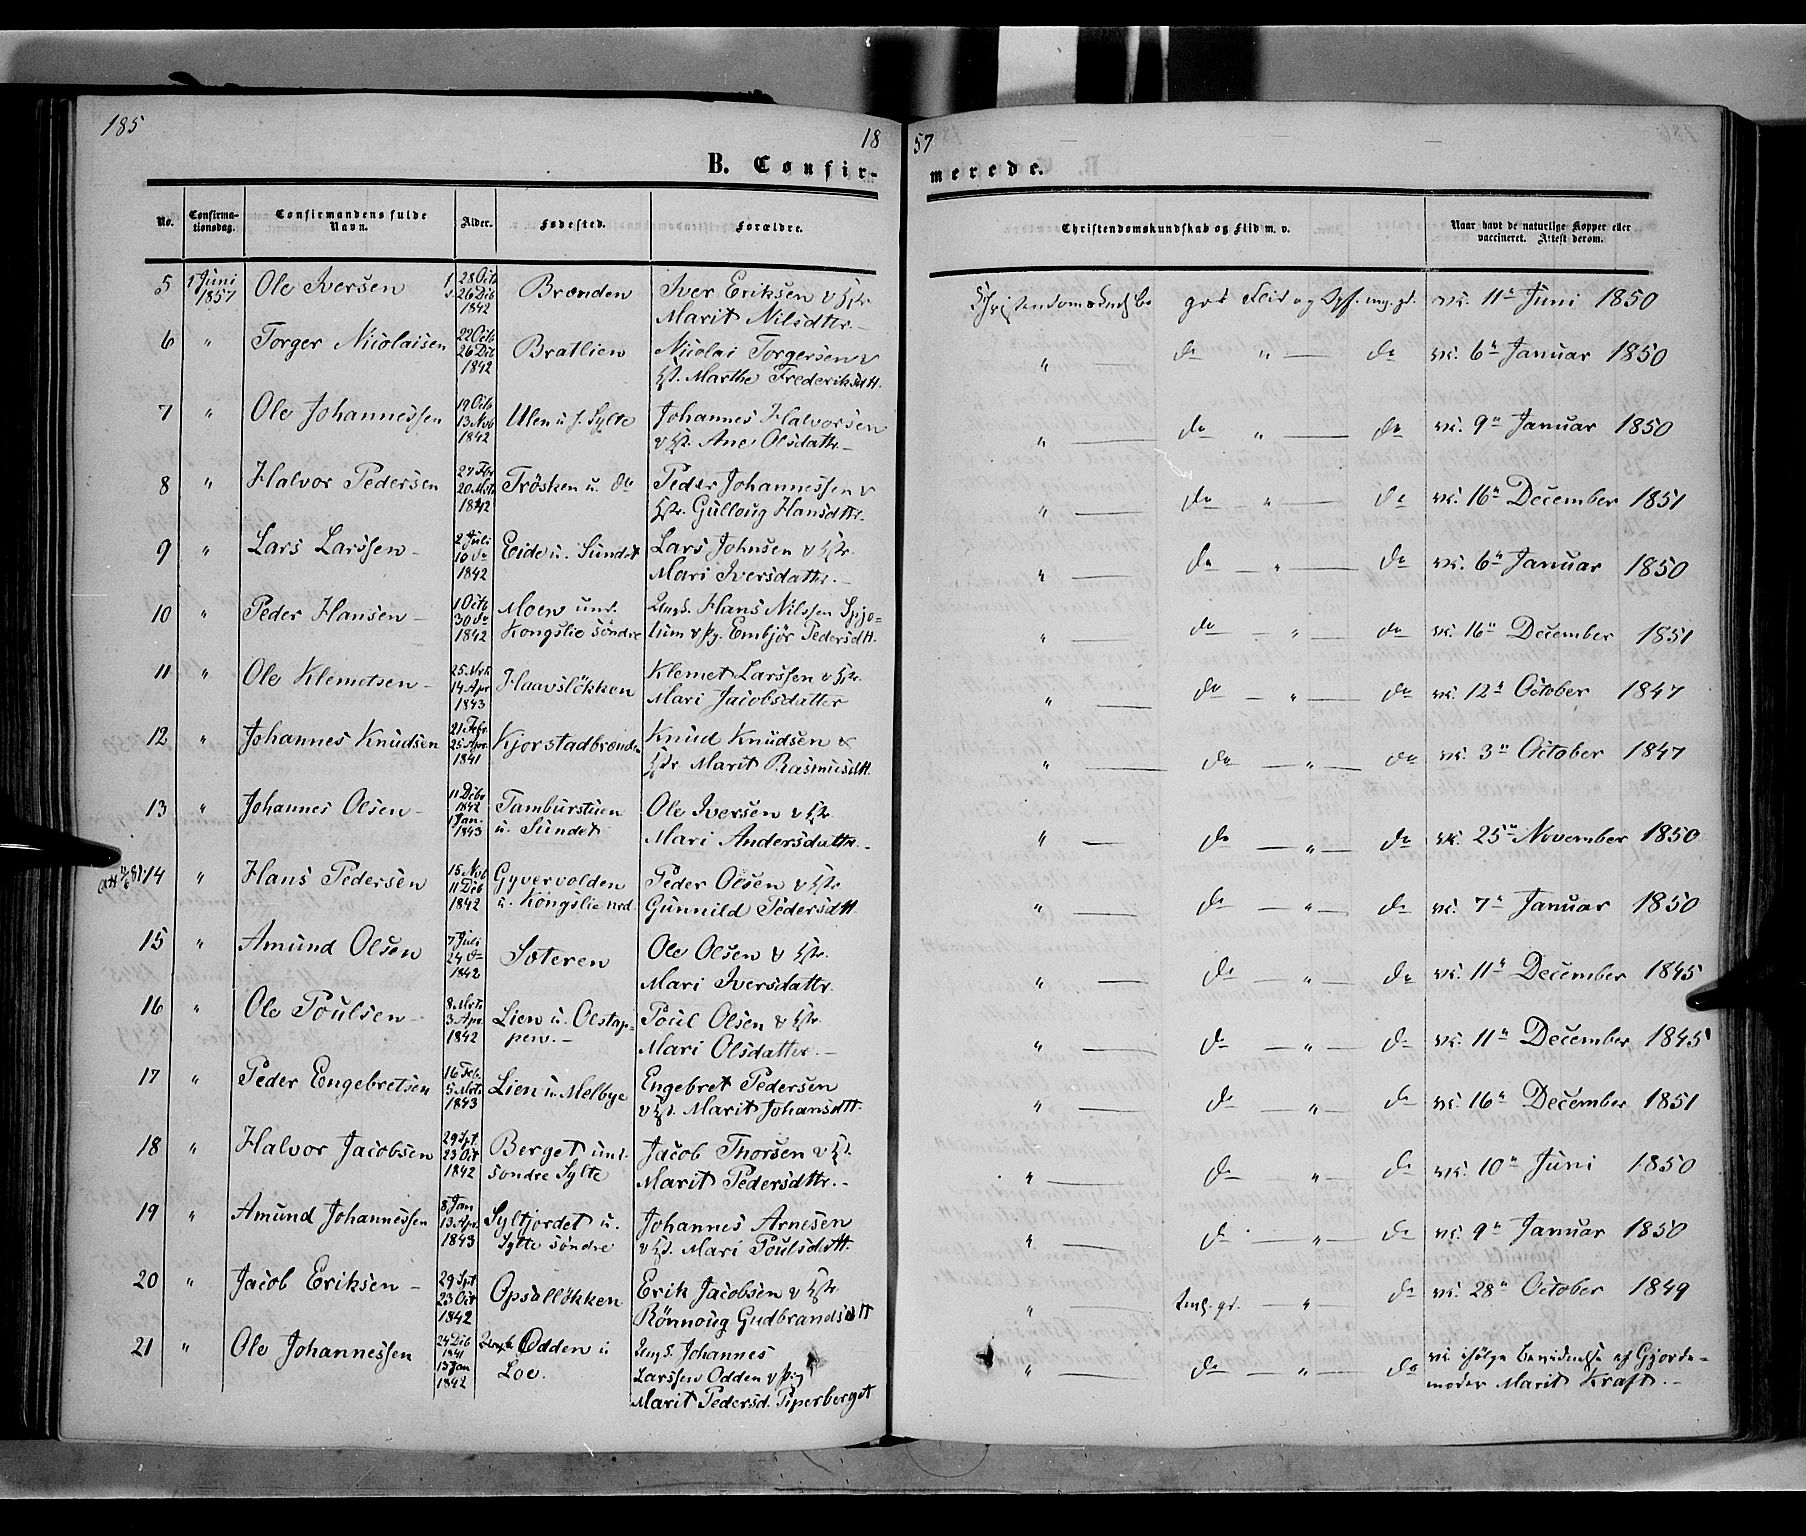 185
18 57
B. Confir- merede.
No. Confirma-tionsdag. Confirmandens fulde Navn. Alder. Fødested. Forældre. Christendomskundskab og Flid m. v. Naar havt de naturlige Kopper eller vaccineret. Attest derom.
5 1 Juni 1857 Ole Iversen f 28 Octb v 26 Dcb 1842 Brænden Iver Eriksen v Hstr. Marit Nilsdttr. god Flid og Opf. mg. gd. vc. 11te Juni 1850
6 " Torger Nicolaisen 22 Octb 26 Dcb 1842 Bratlien Nicolai Torgersen v Hst. Marthe Frederiksdtt. " do " do vc. 6te Januar 1850
7 " Ole Johannessen 19 Octb 13 Nvb 1842 Ulen u. s. Sylte Johannes Halvorsen v Hst. Ane Olsdattr. " do " do vc. 9te Januar 1850
8 " Halvor Pedersen 27 Fbr 20 Mrts 1842 Trösken u. do Peder Johannessen v Hstr. Gulloug Hansdttr. " do " do vc. 16te December 1851
9 " Lars Larssen 2 Juli 10 do 1842 Eide u. Sundet Lars Johnsen v Hstr. Mari Iversdattr. " do " do vc. 6te Januar 1850
10 " Peder Hansen 1 Octb 30 do 1842 Moen und. Kongslie söndre Ungk. Hans Nilssen Spjo-lum v pg. Embjör Pedersdtt. " do " do vc. 16te December 1851
11 " Ole Klemetsen 25 Mrts 14 Apr 1843 Haavslökken Klemet Larssen v Hstr. Mari Jacobsdatter " do " do vc. 12te October 1847
12 " Johannes Knudsen 21 Febr. 25 Apr. 1841 Kjorstadbrænden Knud Knudsen & Hstr Marit Rasmusdtt. " do " do vc. 3die October 1847
13 " Johannes Olsen 11 Dcbr 1842 1 Jan. 1843 Tamburstuen u. Sundet Ole Iversen v Hstr. Mari Andersdattr. " do " do vc. 25de November 1850
14 " Hans Pedersen 15 Nvb 11 Dcb 1842 Gyvervolden u. Kongslie nrd. Peder Olsen v Hstr Gunnild Pedersdtt. " do " do vc. 7de Januar 1850
15 " Amund Olsen 7 Juli 24 do 1842 Sæteren Ole Olsen & Hstr. Mari Iversdattr. " do " do vc. 11te December 1845
16 " Ole Poulsen 8 Mrts 3 Apr. 1842 Lien u. Olstap-pen. Poul Olsen & Hstr. Mari Olsdatter. " do " do vc. 11te December 1845
17 " Peder Engebretsen 16 Feb. 5 Mrts 1843 Lien u. Melbye Engebret Pedersen v Hst. Marit Johansdtt. " do " do vc. 16de December 1851
18 " Halvor Jacobsen 29 Spt. 23 Oct 1842 Berget und. söndre Sylte Jacob Thorsen v Hst. Marit Pedersdttr. " do " do vc. 10de Juni 1850
19 " Amund Johannessen 8 Jan 13 Apr. 1843 Syltjordet u. Sylte söndre Johannes Arnesen v Hst. Mari Poulsdatt. " do " do vc. 9de Januar 1850
20 " Jacob Eriksen 29 Spt. 23 Oct 1842 Opsallökken Erik Jacobsen v Hstr. Rönnoug Gudbrandsdtt " gd. " do vc. 28de October 1849
21 " Ole Johannessen 24 Dcb 1841 13 Jan 1842 Odden u Loe. Ungk. Johannes Larssen Odden v pig. Marit Pedersd. Piperberget " do " do vc ifølge Bevidnelse af Gjorde-moder Marit Kraft.